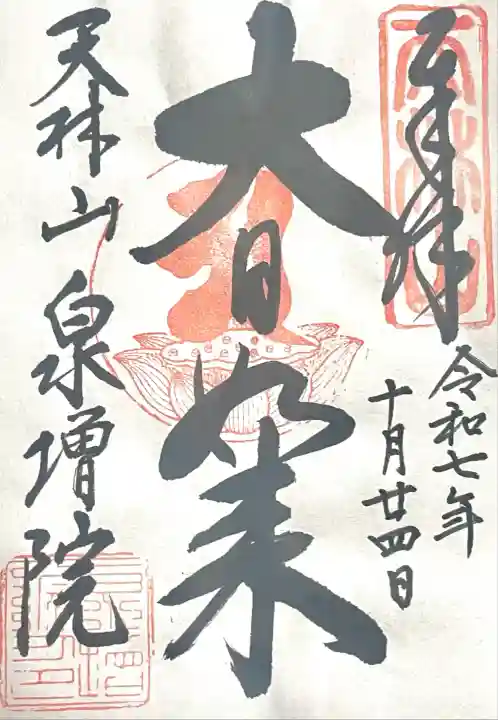 奉拝
令和七年
十月廿四日
大日如来
天神山泉増院